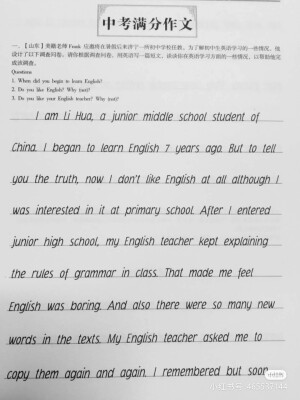 中考满分作文
一、【山东】美籍老师 Frank 位邀将在暑假后来济宁一所初中学校任教，为了解初中生英语学习的一些情况，他
设计了以下调查问卷。请你根据调查问卷，用英语写一篇短文，谈谈你在英语学习方面的一些情况，以帮助他完
成该调查。
Questions
1. When did you begin to learn English?
2. Do you like English? Why (not)?
3. Do you like your English teacher? Why (not)?
I am Li Hua, a junior middle school student of
China. I began to learn English 7 years ago. But to tell
you the truth, now I don't like English at all although I
was interested in it at primary school. After I entered
junior high school, my English teacher kept explaining
the rules of grammar in class. That made me feel
English was boring. And also there were so many new
words in the texts. My English teacher asked me to
copy them again and again. I remembered but soon
小红书